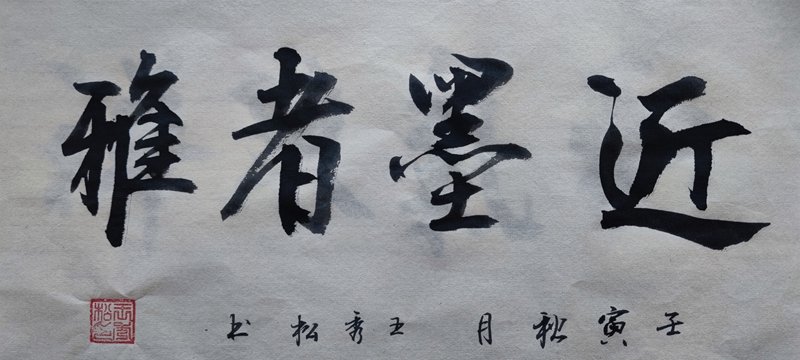 近墨者雅
壬寅秋月王秀松书